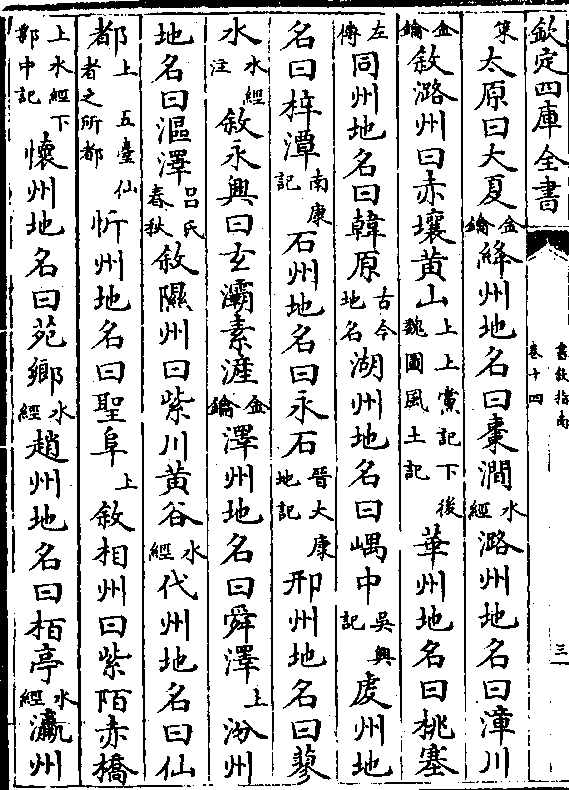 欽定四庫全書
書敘指南
卷十四
三
集太原曰大夏金鑰絳州地名曰棗澗水經潞州地名曰漳川
金鑰敘潞州曰赤壤黄山上上黨記下後魏圖風土記華州地名曰桃塞
左傳同州地名曰韓原古今地名湖州地名曰嵎中吳興記處州地
名曰梓潭南康記石州地名曰永石晉大康地記邢州地名曰蓼
水水經注敘永興曰玄灞素滻金鑰澤州地名曰舜澤上汾州
地名曰漚澤呂氏春秋敘隰州曰紫川黄谷水經代州地名曰仙
都上五臺仙者之所都忻州地名曰聖阜上敘相州曰紫陌赤橋
上水經下鄴中記懷州地名曰苑鄉水經趙州地名曰栢亭水經瀛州